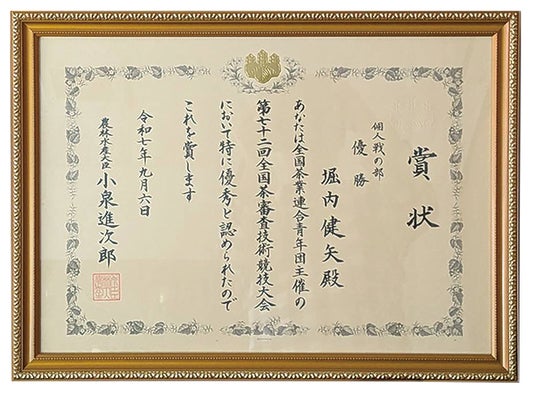 賞状
個人戦の部
優勝
堀内健矢殿
あなたは全国茶業連合青年団主催の
第七十二回全国茶審査技術競技大会
において特に優秀と認められたので
これを賞します
令和七年九月六日
農林水産大臣 小泉進次郎